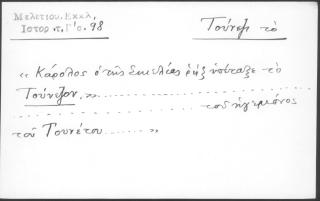 Μελετίου.Εκκλ.
Ιστορ.τ.Γ'σ.98
Τούνεζι τὸ
« Κάρολος ὁ τῆς Σικελίας ῥήξ ὑπέταξε τὸ
Τούνεζον.»
τοῦ ἡγεμόνος
τοῦ Τουνέτου . . . . . . . . »